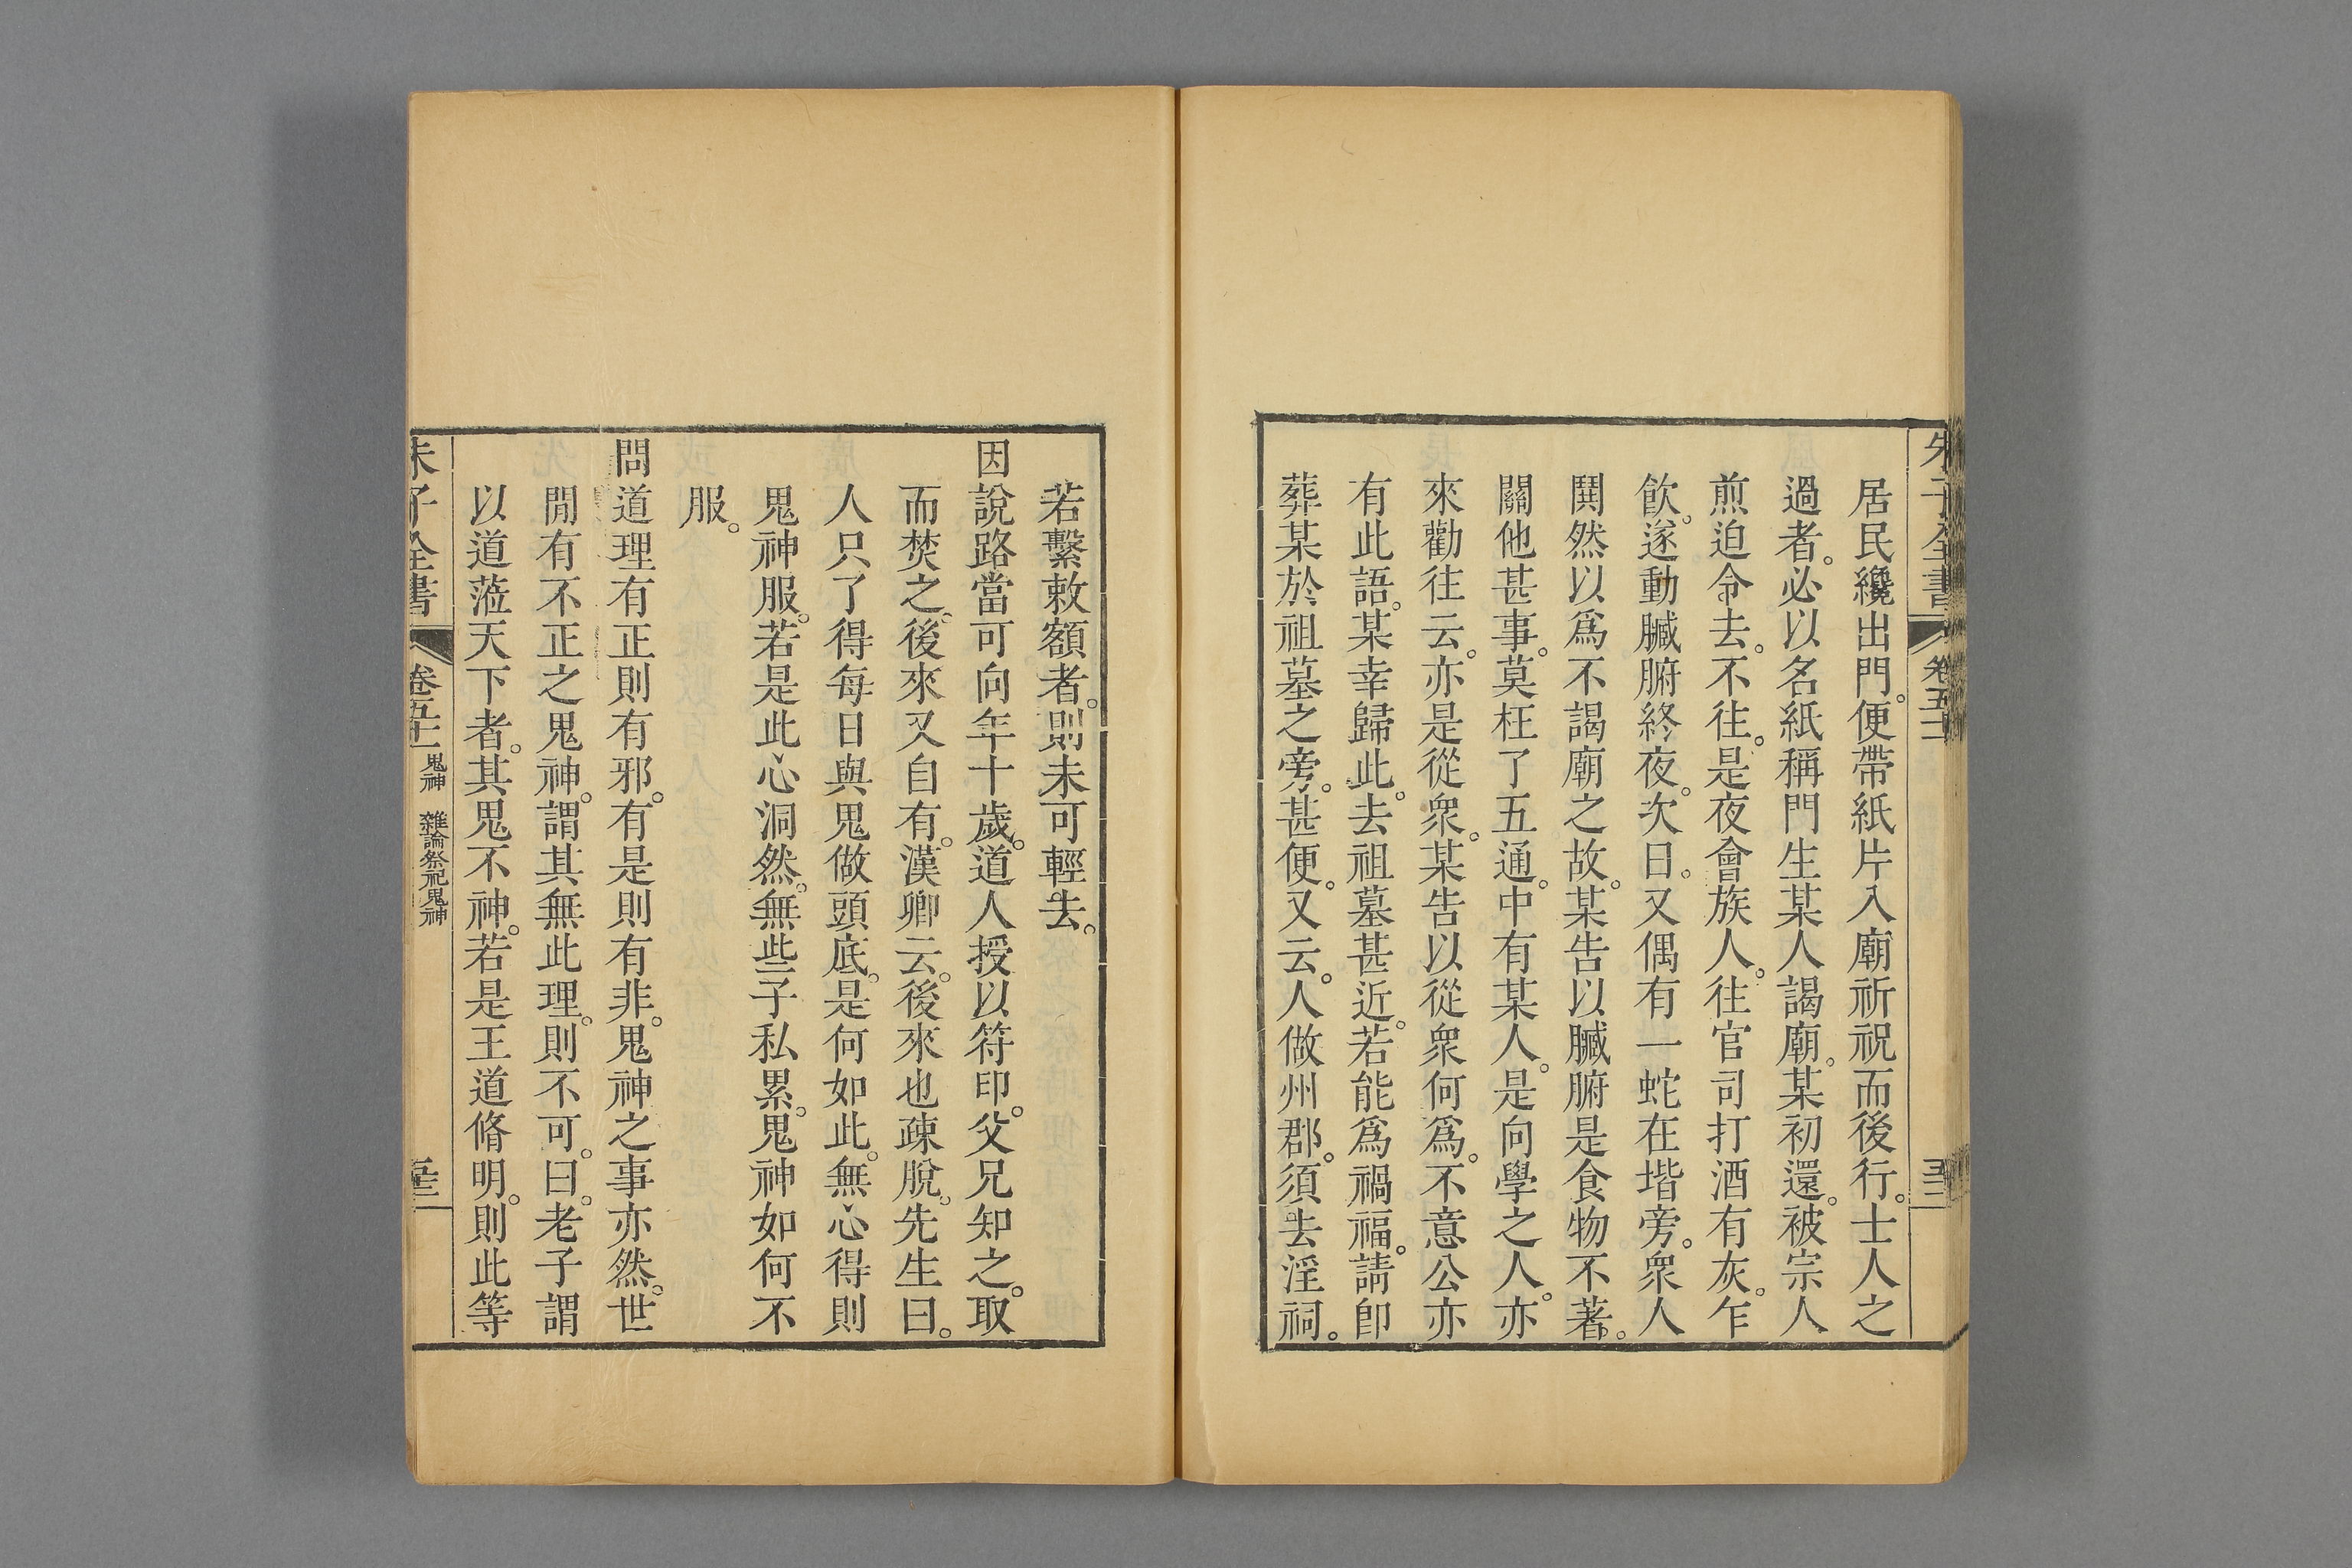 朱子全書 卷五十一 五十二
居民纔出門。便帶紙片入廟祈祝而後行。士人之
過者。必以名紙稱門生某人謁廟。某初還。被宗人
煎迫令去。不往。是夜會族人。往官司打酒有灰。乍
飲。遂動臟腑終夜。次日。又偶有一蛇在堦旁。衆人
鬨然以爲不謁廟之故。某告以臟腑是食物不著。
關他甚事。莫枉了五通。中有某人。是向學之人。亦
來勸往云。亦是從衆。某告以從衆何爲。不意公亦
有此語。某幸歸此。去祖墓甚近。若能爲禍福。請卽
葬某於祖墓之旁。甚便。又云。人做州郡。須去淫祠。
若繫敕額者。則未可輕去。
因說路當可向年十歲。道人授以符印。父兄知之。取
而焚之。後來又自有。漢卿云。後來也疎脫。先生曰。
人只了得每日與鬼做頭底。是何如此。無心得則
鬼神服。若是此心洞然。無些子私累。鬼神如何不
服。
問道理有正則有邪。有是則有非。鬼神之事亦然。世
間有不正之鬼神。謂其無此理。則不可。曰。老子謂
以道蒞天下者。其鬼不神。若是王道脩明。則此等
朱子全書 卷五十一 鬼神 雜論祭祀鬼神 五十三